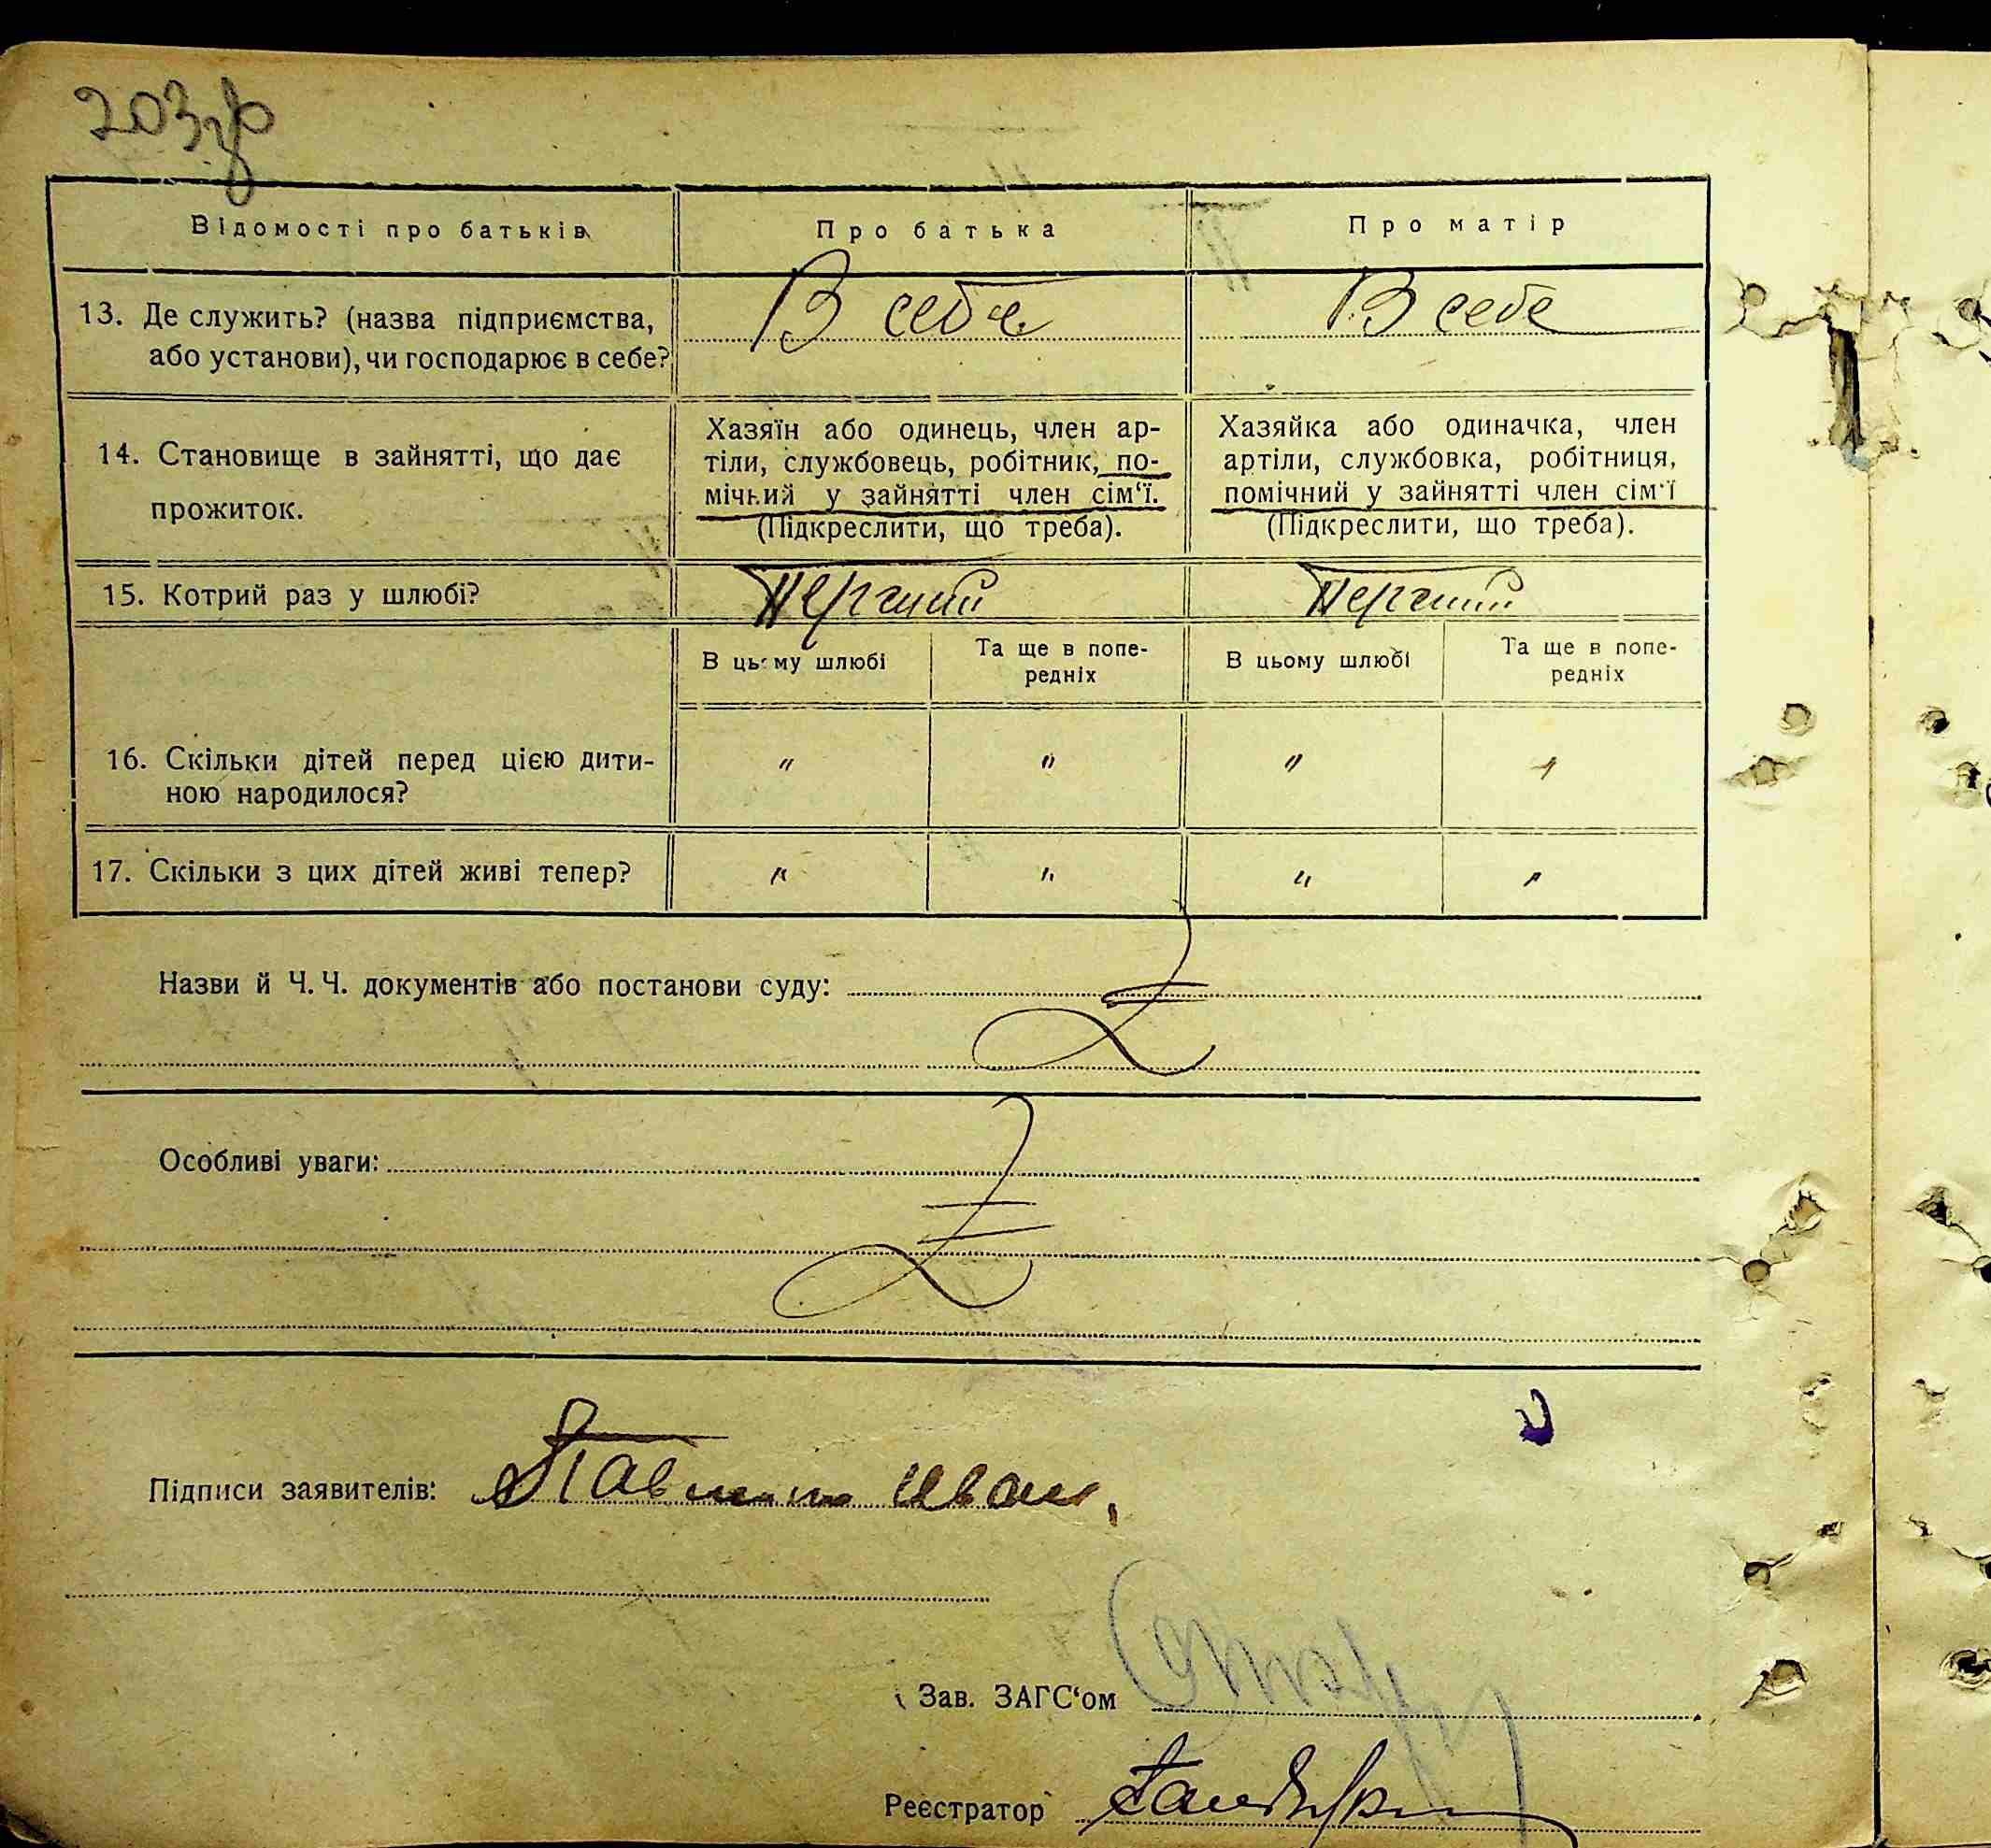 203
Відомості про батьків
Про батька
Про матір
13. Де служить? (назва підприємства,
або установи), чи господарює в себе?
В себе
В себе
14. Становище в зайнятті, що дає
прожиток.
Хазяїн або одинець, член ар-
тіли, службовець, робітник, по-
мічний у зайнятті член сім‘ї.
(Підкреслити, що треба).
Хазяйка або одиначка, член
артіли, службовка, робітниця,
помічний у зайнятті член сім‘ї
(Підкреслити, що треба).
15. Котрий раз у шлюбі?
Перший
Перший
В цьому шлюбі
Та ще в попе-
редніх
В цьому шлюбі
Та ще в попе-
редніх
16. Скільки дітей перед цією дити-
ною народилося?
" " " "
17. Скільки з цих дітей живі тепер?
" " " "
Назви й Ч. Ч. документів або постанови суду:
Особливі уваги:
Підписи заявителів: Иван
Зав. ЗАГС‘ом
Реєстратор